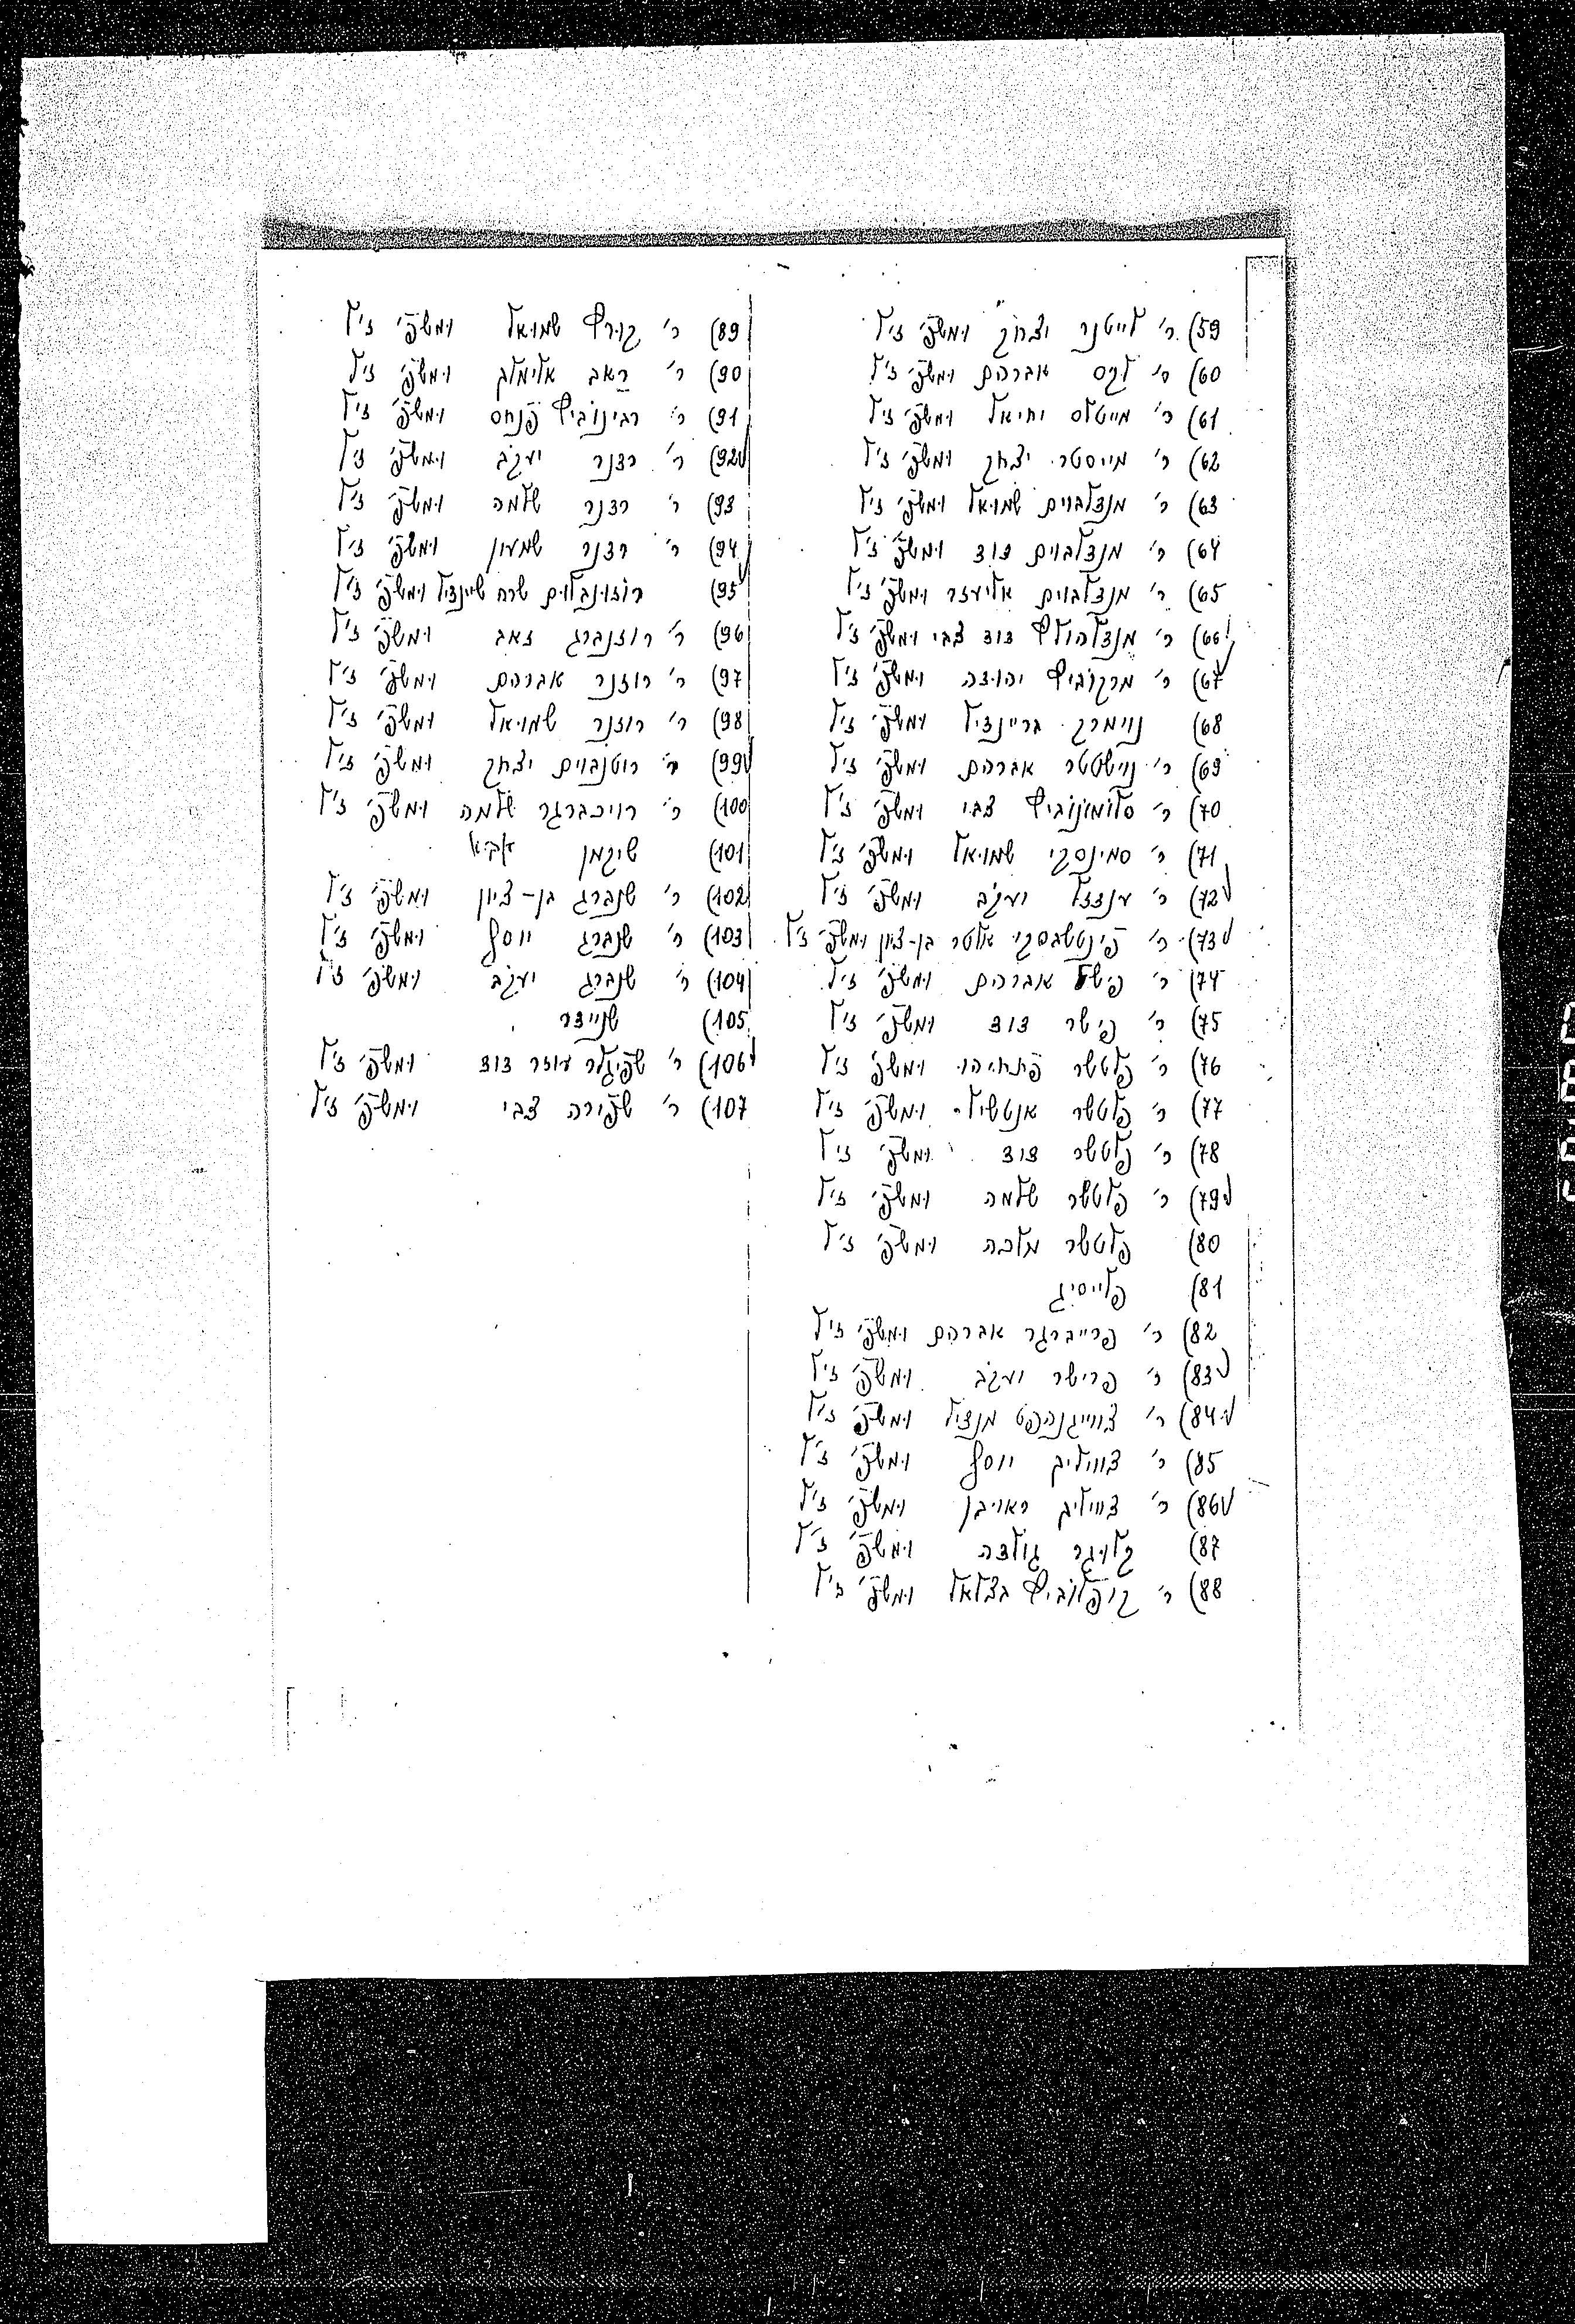 59) ר' לייטנר יצחק ומשפ' ז"ל
60) ר' לקס אברהם ומשפ' ז"ל
61) ר' מייטלס יחיאל ומשפ' ז"ל
62) ר' מייסטר יצחק ומשפ' ז"ל
63) ר' מנדלבוים שמואל ומשפ' ז"ל
64) ר' מנדלבוים דוד ומשפ' ז"ל
65) ר' מנדלבוים אליעזר ומשפ' ז"ל
66) ר' מנדלהולץ דוד צבי ומשפ' ז"ל
67) ר' מרקוביץ יהודה ומשפ' ז"ל
68) נוימרק בריינדיל ומשפ' ז"ל
69) ר' נוישטטר אברהם ומשפ' ז"ל
70) ר' סלומונוביץ צבי ומשפ' ז"ל
71) ר' סמינסקי שמואל ומשפ' ז"ל
72) ר' ענדזל יעקב ומשפ' ז"ל
73) ר' פינטשבסקי אלטר בן-ציון ומשפ' ז"ל
74) ר' פישל אברהם ומשפ' ז"ל
75) ר' פישר דוד ומשפ' ז"ל
76) ר' פלטשר פתחיהו ומשפ' ז"ל
77) ר' פלטשר אנטשיל ומשפ' ז"ל
78) ר' פלטשר דוד ומשפ' ז"ל
79) ר' פלטשר שלמה ומשפ' ז"ל
80) פלטשר מלכה ומשפ' ז"ל
81) פלייסיג
82) ר' פרייברגר אברהם ומשפ' ז"ל
83) ר' פרישר יעקב ומשפ' ז"ל
84) ר' צווייגנהפט מנדיל ומשפ' ז"ל
85) ר' צוויליג יוסף ומשפ' ז"ל
86) ר' צוויליג ראובן ומשפ' ז"ל
87) קלוגר גולדה ומשפ' ז"ל
88) ר' קופלוביץ בצלאל ומשפ' ז"ל
89) ר' קורץ שמואל ומשפ' ז"ל
90) ר' ראב אלימלך ומשפ' ז"ל
91) ר' רבינוביץ פנחס ומשפ' ז"ל
92) ר' רדנר יעקב ומשפ' ז"ל
93) ר' רדנר שלמה ומשפ' ז"ל
94) ר' רדנר שמעון ומשפ' ז"ל
95) רוזונבלום שרה שיינדיל ומשפ' ז"ל
96) ר' רוזנברג זאב ומשפ' ז"ל
97) ר' רוזנר אברהם ומשפ' ז"ל
98) ר' רוזנר שמואל ומשפ' ז"ל
99) ר' רוטנבוים יצחק ומשפ' ז"ל
100) ר' רויכברגר שלמה ומשפ' ז"ל
101) שיגמן
102) ר' שנברג בן-ציון ומשפ' ז"ל
103) ר' שנברג יוסף ומשפ' ז"ל
104) ר' שנברג יעקב ומשפ' ז"ל
105) שניידר
106) ר' שפיגלר עוזר דוד ומשפ' ז"ל
107) ר' שפירה צבי ומשפ' ז"ל